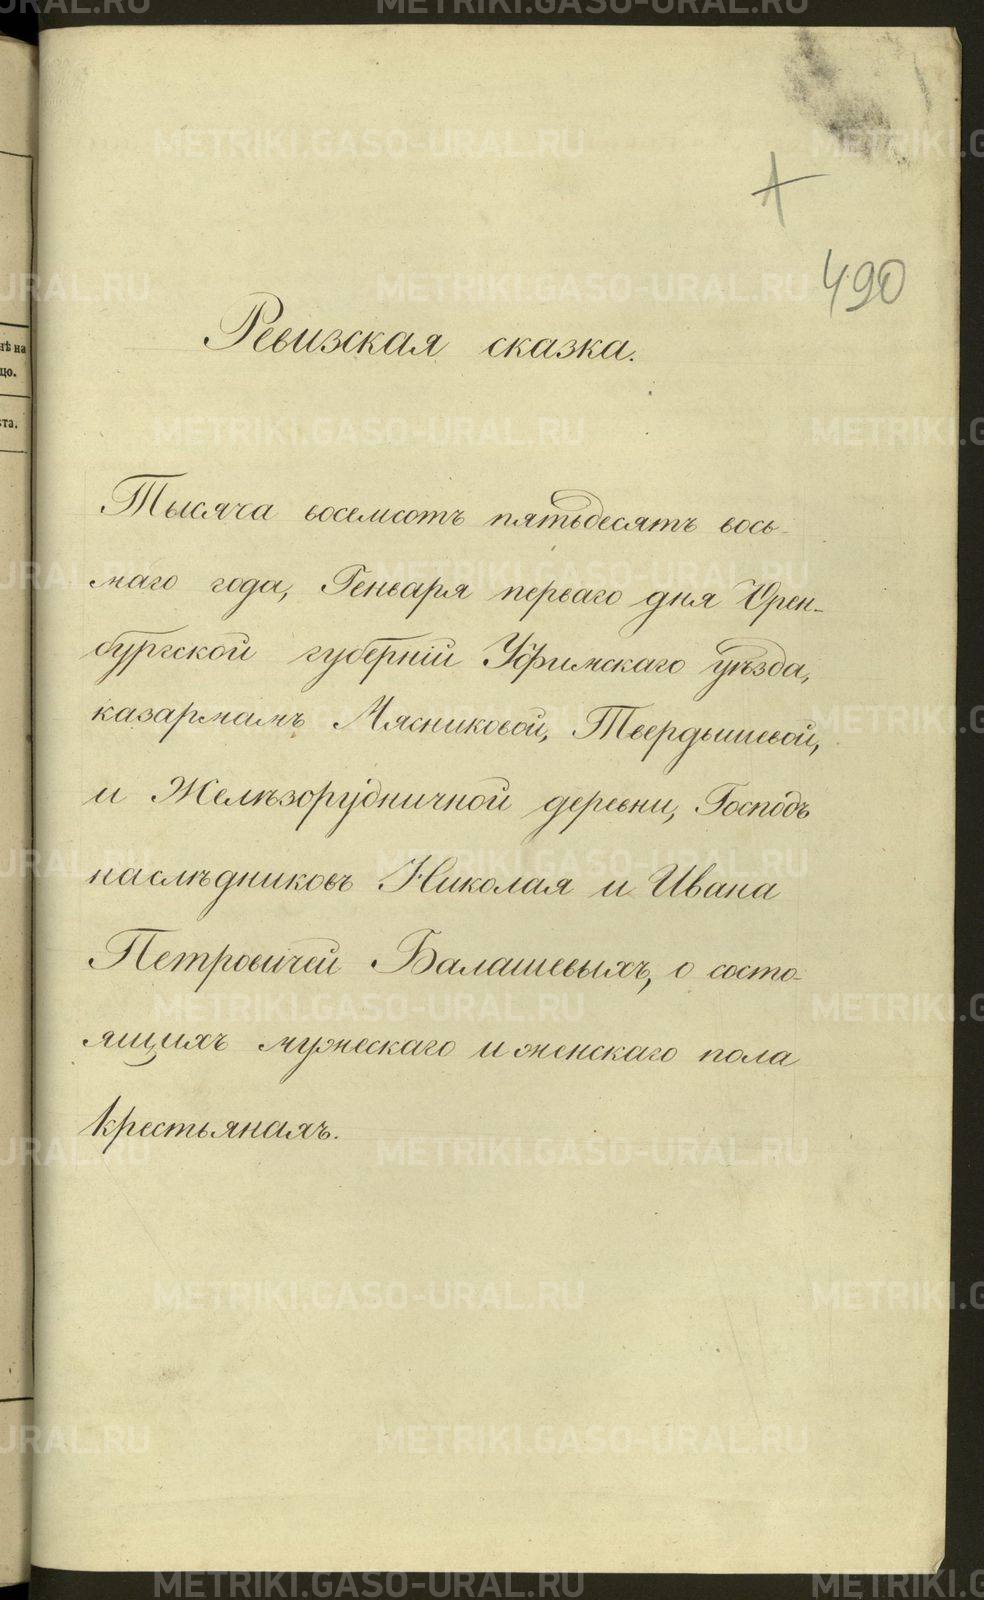 490
Ревизская сказка.
Тысяча восемсотъ пятьдесятъ вось-
маго года, Генваря перваго дня Орен-
бургской губерніи Уфимскаго уѣзда,
казармамъ Мясниковой, Твердышевой,
и Желѣзорудничной деревни, Господъ
наслѣдниковъ Николая и Ивана
Петровичей Балашевыхъ, о состо-
ящихъ мужескаго и женскаго пола
крестьянахъ.
нѣ на
цо.
ста.
METRIKI.GASO-URAL.RU